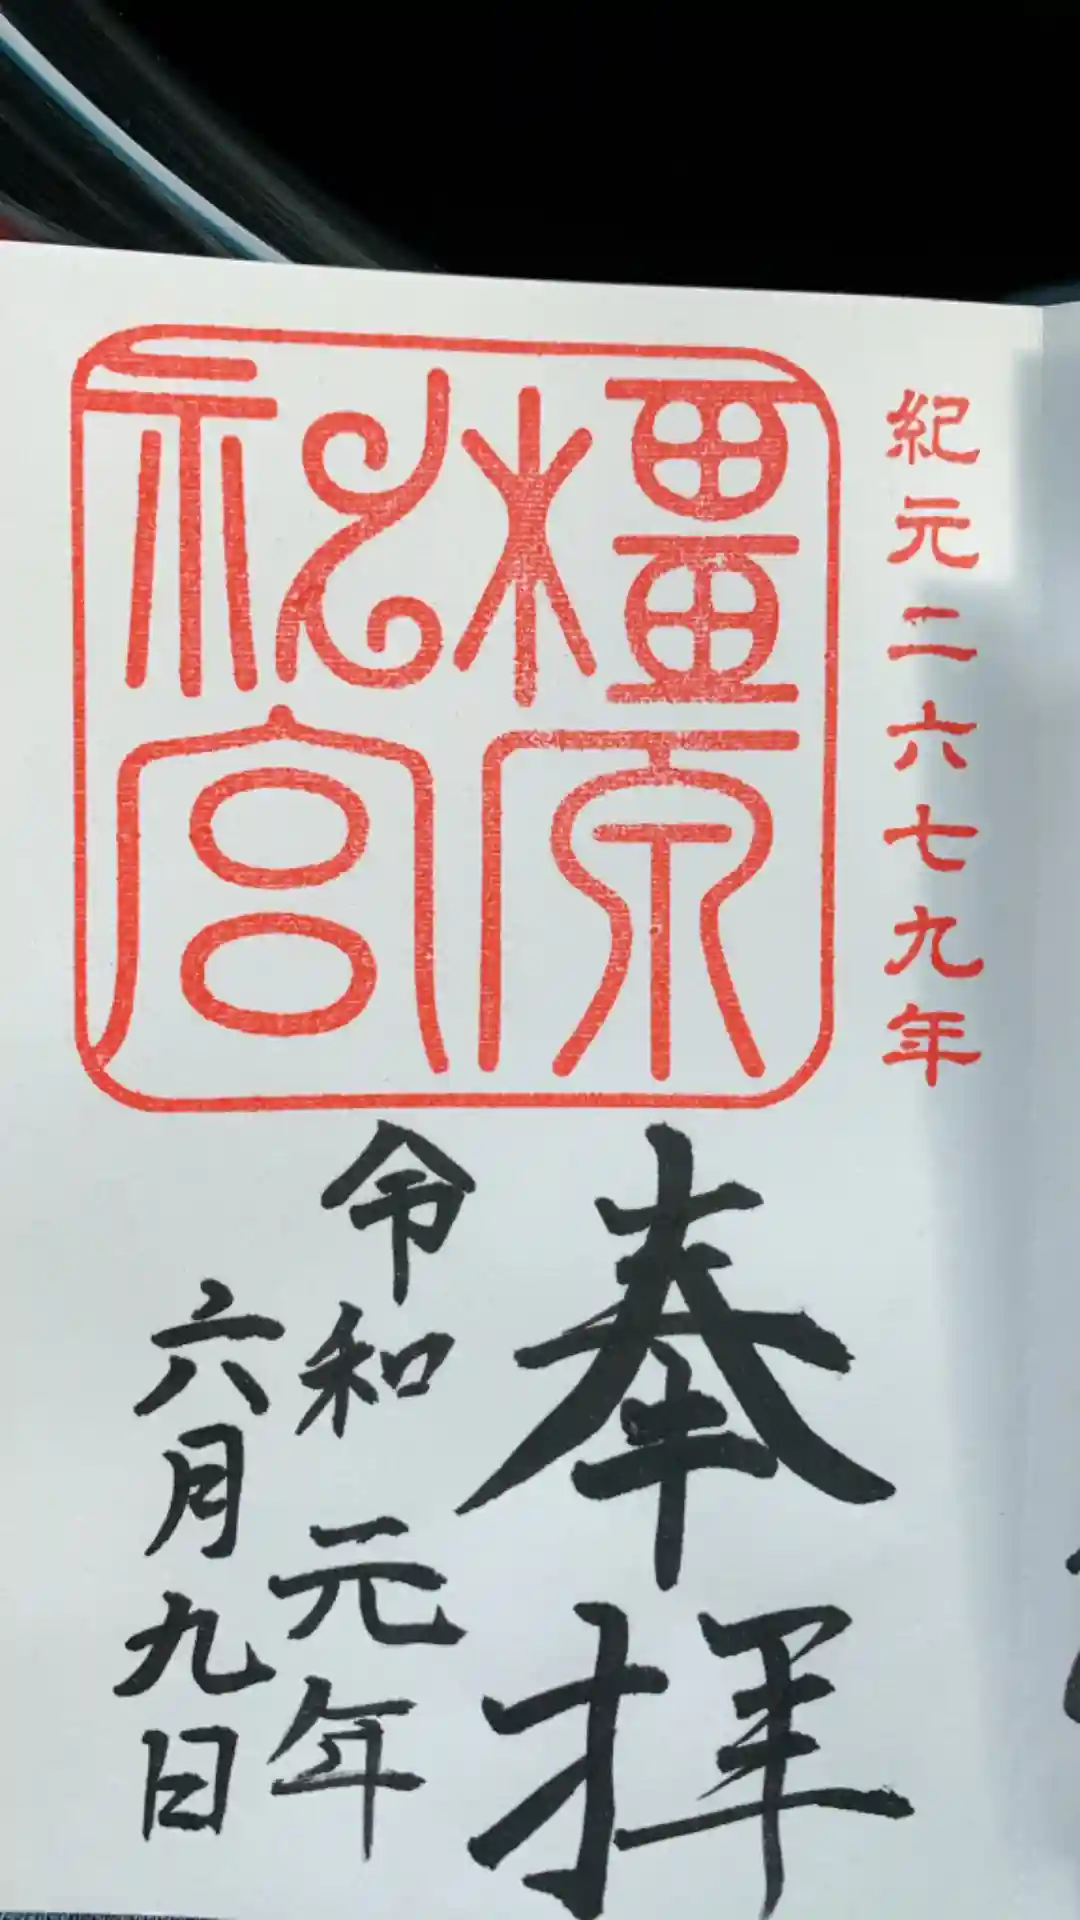 紀元二六七九年
橿原
神宮
奉拝
令和元年
六月九日